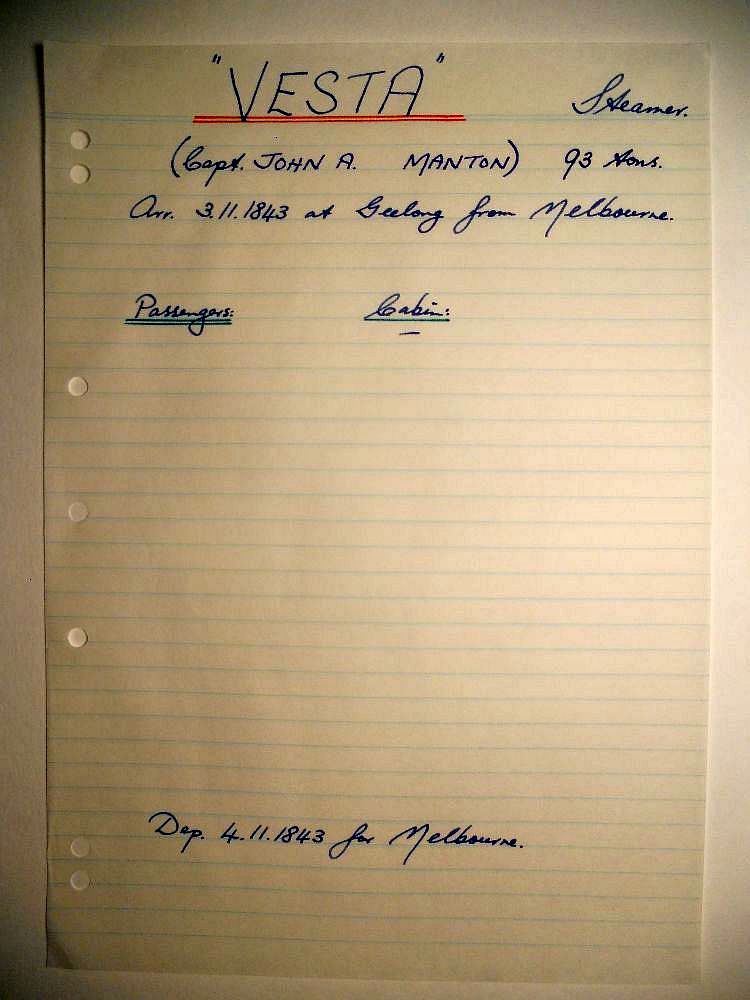 "VESTA" Steamer.
(Capt. JOHN A. MANTON) 93 tons.
Arr. 3.11.1843 at Geelong from Melbourne.
Passengers: Cabin:
—
Dep. 4.11.1843 for Melbourne.